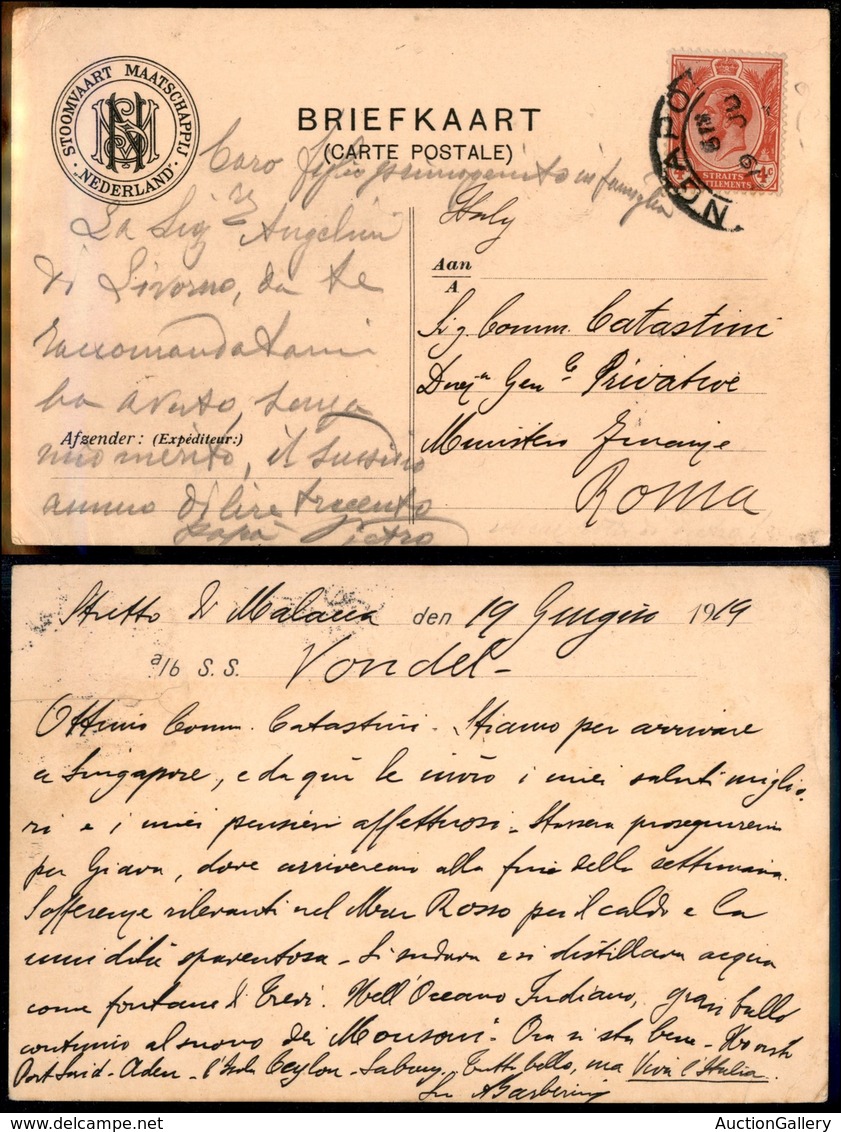 STOOMVAART MAATSCHAPPIJ
NEDERLAND
BRIEFKAART
(CARTE POSTALE)
STRAITS
SETTLEMENTS
4c
Caro figlio primogenito in famiglia
La Sigra Angelini
di Livorno, da te
raccomandatami
ha avuto, senza
mio merito, il sussidio
annuo di lire trecento
papà Pietro
Afzender: (Expéditeur:)
Italy
Aan
A
Sig Comm. Catastini
Direzn Gen le Privative
Ministero Finanze
ROMA
Stretto di Malacca den 19 Giugno 1919
a/b S. S. Vondel-
Ottimo Comm. Catastini - Stiamo per arrivare
a Singapore, e da qui le invio i miei saluti miglio-
ri e i miei pensieri affettuosi - Stasera proseguiremo
per Giava, dove arriveremo alla fine della settimana.
Sofferenze rilevanti nel Mar Rosso per il caldo e la
umidità spaventosa - Si sudava e si distillava acqua
come fontane di Trevi. Nell'Oceano Indiano, gran ballo
continuo al suono dei Monsoni - Ora si sta bene -
Port Said - Aden - l'Isola Ceylon - Sabang - Tutto bello, ma Viva l'Italia.
AuctionGallery